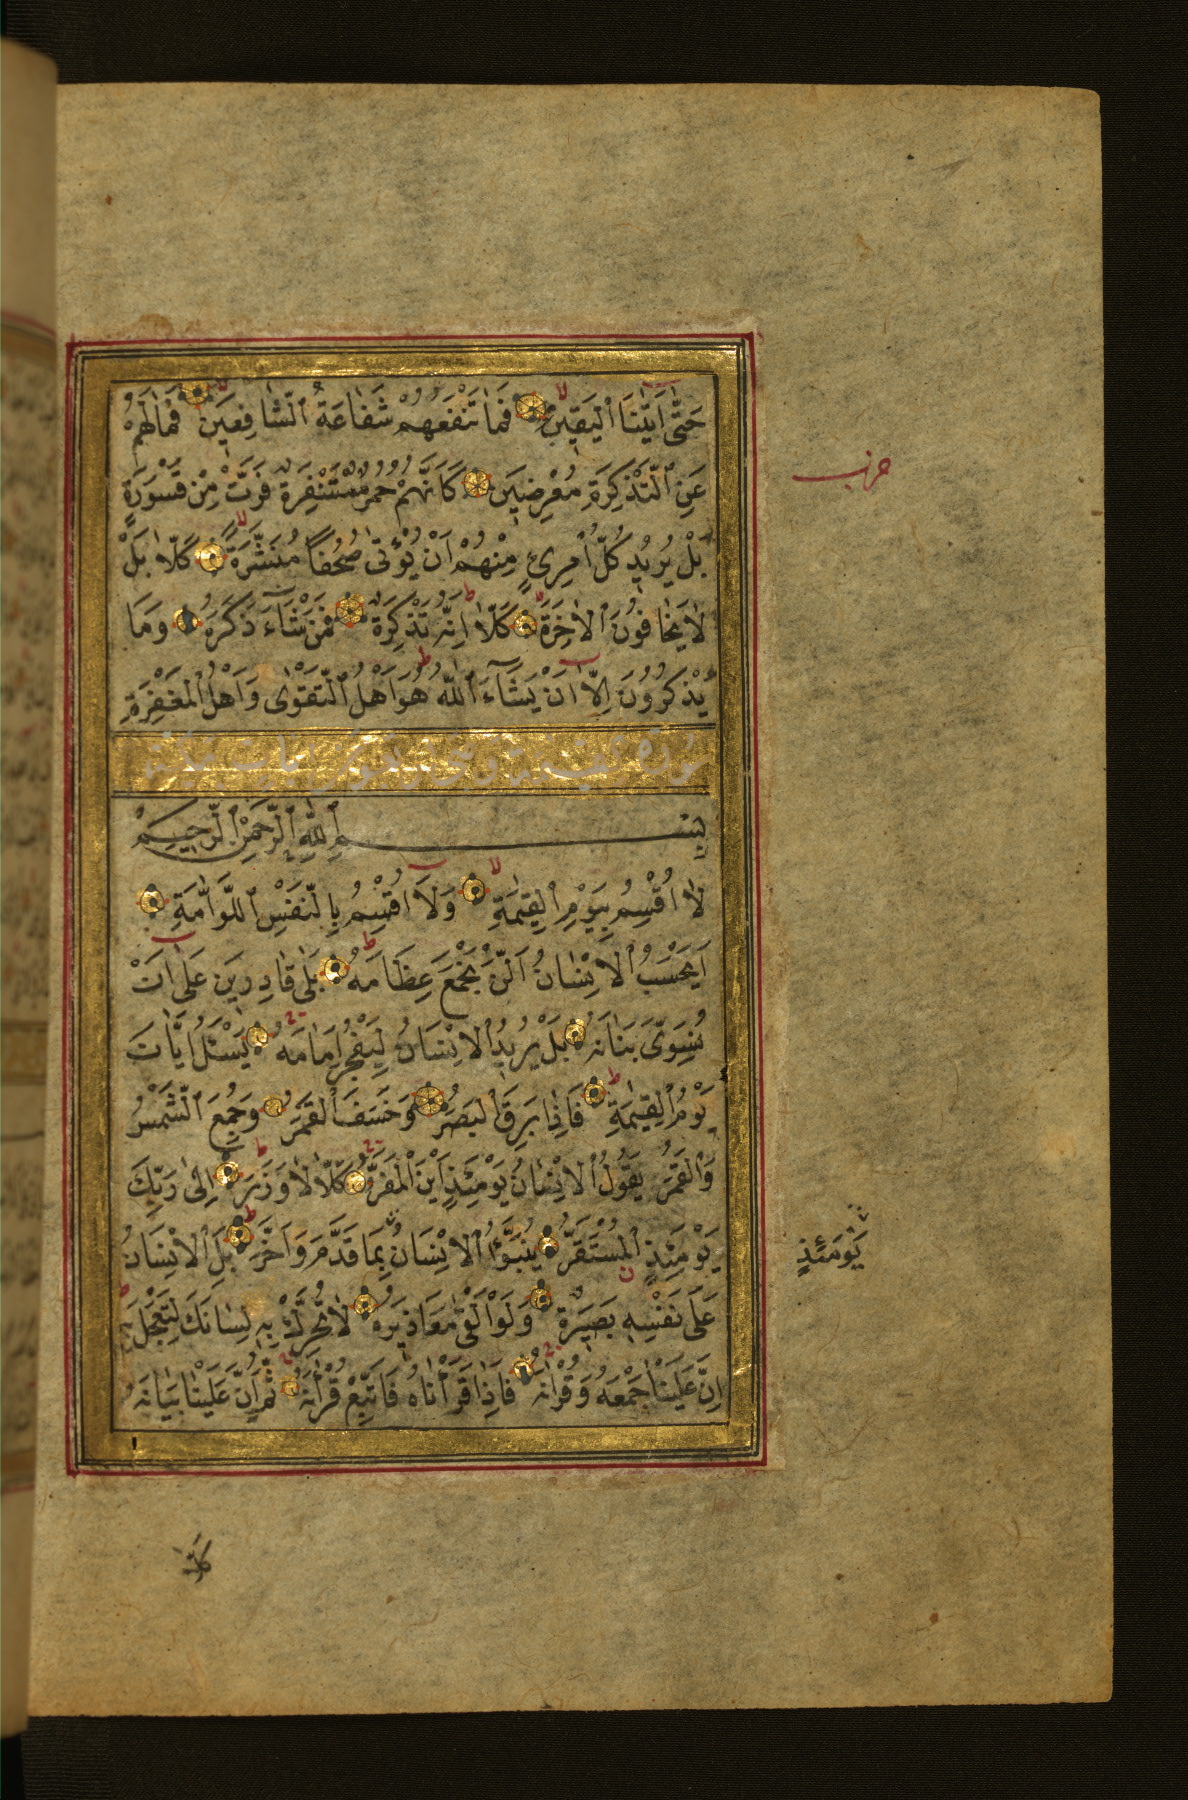 حَتّٰى اَتٰينَا الْيَقِينُ فَمَا تَنْفَعُهُمْ شَفَاعَةُ الشَّافِعِينَ فَمَا لَهُمْ
عَنِ التَّذْكِرَةِ مُعْرِضِينَ كَاَنَّهُمْ حُمُرٌ مُسْتَنْفِرَةٌ فَرَّتْ مِنْ قَسْوَرَةٍ
بَلْ يُرِيدُ كُلُّ امْرِئٍ مِنْهُمْ اَنْ يُؤْتٰى صُحُفًا مُنَشَّرَةً كَلَّا بَلْ
لَا يَخَافُونَ الْاٰخِرَةَ كَلَّا اِنَّهُ تَذْكِرَةٌ فَمَنْ شَاءَ ذَكَرَهُ وَمَا
يَذْكُرُونَ اِلَّا اَنْ يَشَاءَ اللّٰهُ هُوَ اَهْلُ التَّقْوٰى وَاَهْلُ الْمَغْفِرَةِ
سورة
بِسْمِ اللّٰهِ الرَّحْمٰنِ الرَّحِيمِ
لَا اُقْسِمُ بِيَوْمِ الْقِيٰمَةِ وَلَا اُقْسِمُ بِالنَّفْسِ اللَّوَّامَةِ
اَيَحْسَبُ الْاِنْسَانُ اَلَّنْ نَجْمَعَ عِظَامَهُ بَلٰى قَادِرِينَ عَلٰى اَنْ
نُسَوِّىَ بَنَانَهُ بَلْ يُرِيدُ الْاِنْسَانُ لِيَفْجُرَ اَمَامَهُ يَسْئَلُ اَيَّانَ
يَوْمُ الْقِيٰمَةِ فَاِذَا بَرِقَ الْبَصَرُ وَخَسَفَ الْقَمَرُ وَجُمِعَ الشَّمْسُ
وَالْقَمَرُ يَقُولُ الْاِنْسَانُ يَوْمَئِذٍ اَيْنَ الْمَفَرُّ كَلَّا لَا وَزَرَ اِلٰى رَبِّكَ
يَوْمَئِذٍ الْمُسْتَقَرُّ يُنَبَّؤُا الْاِنْسَانُ بِمَا قَدَّمَ وَاَخَّرَ بَلِ الْاِنْسَانُ
عَلٰى نَفْسِهِ بَصِيرَةٌ وَلَوْ اَلْقٰى مَعَاذِيرَهُ لَا تُحَرِّكْ بِهِ لِسَانَكَ لِتَعْجَلَ بِهِ
اِنَّ عَلَيْنَا جَمْعَهُ وَقُرْاٰنَهُ فَاِذَا قَرَاْنَاهُ فَاتَّبِعْ قُرْاٰنَهُ ثُمَّ اِنَّ عَلَيْنَا بَيَانَهُ
حزب
يَوْمَئِذٍ
كَلَّا